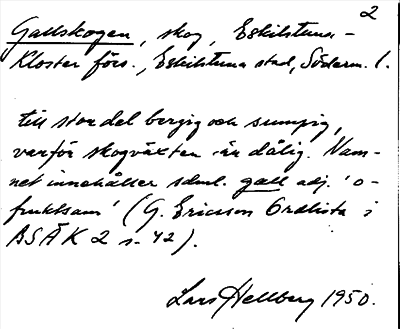 2
Gallskogen, skog, Eskilstuna-
Kloster förs., Eskilstuna stad, Söderm. l.
till stor del bergig och sumpig,
varför skogväxten är dålig. Nam-
net innehåller sdml. gall adj. 'o-
fruktsam' (G. Ericson Ordlista i
BSÄK 2 s. 42).
Lars Hellberg 1950.